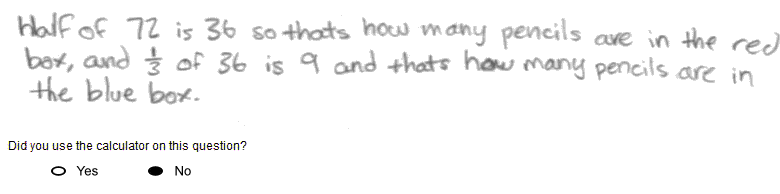 Half of 72 is 36 so thats how many pencils are in the red
box, and 1/3 of 36 is 9 and thats how many pencils are in
the blue box.
Did you use the calculator on this question?
Yes No